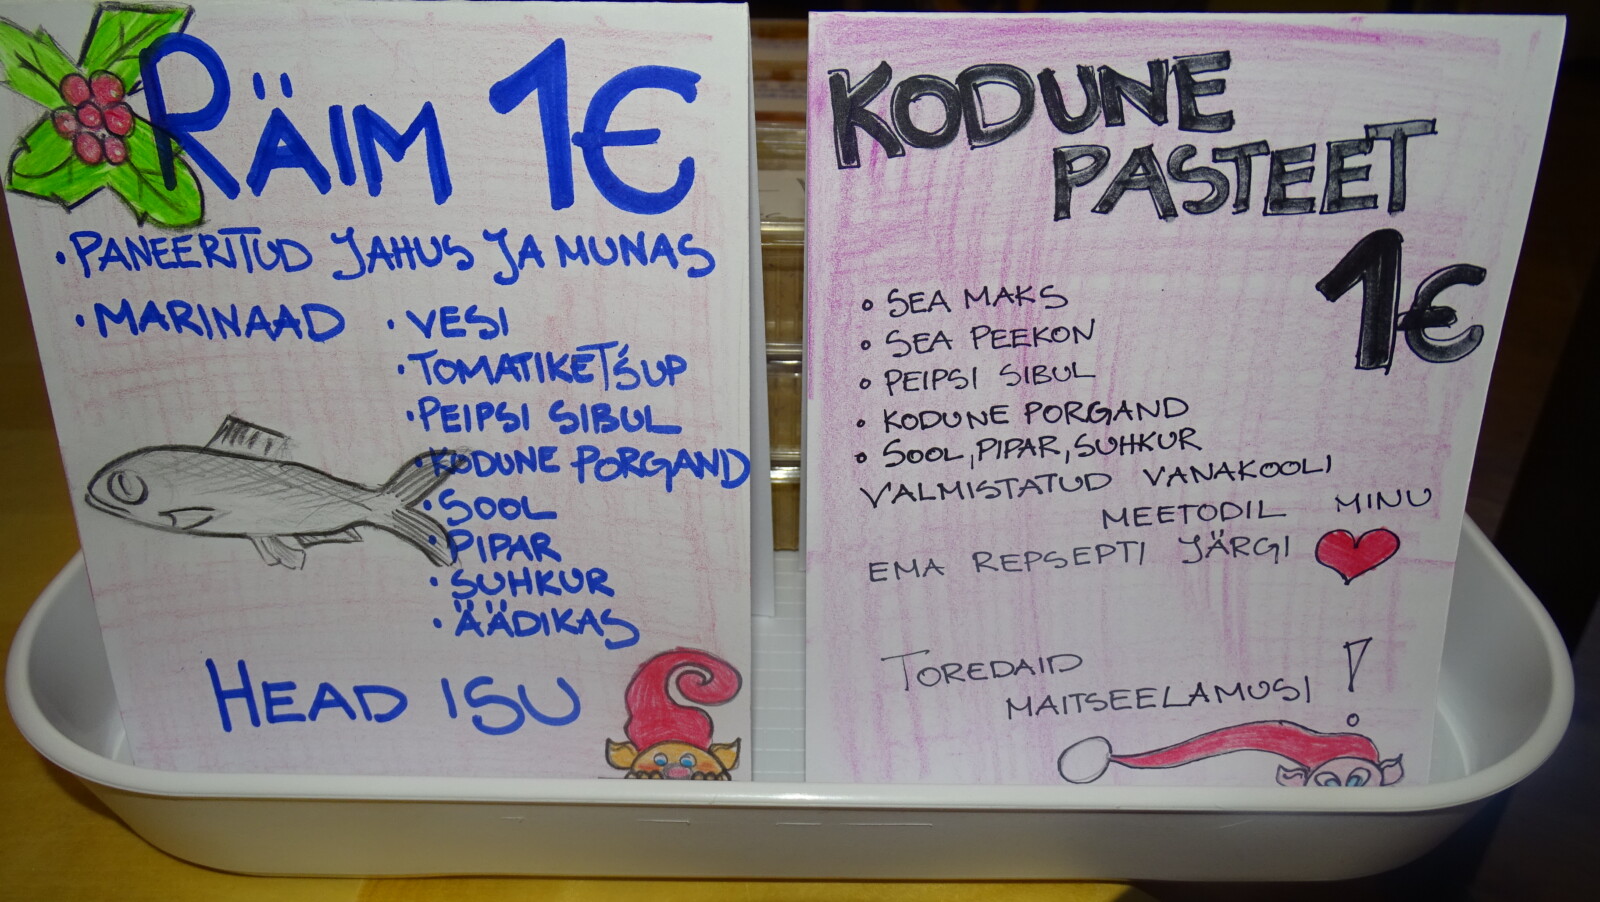 RÄIM 1€
• PANEERITUD JAHUS JA MUNAS
• MARINAAD
• VESI
• TOMATIKETŠUP
• PEIPSI SIBUL
• KODUNE PORGAND
• SOOL
• PIPAR
• SUHKUR
• ÄÄDIKAS
HEAD ISU
KODUNE
PASTEET
1€
• SEA MAKS
• SEA PEEKON
• PEIPSI SIBUL
• KODUNE PORGAND
• SOOL, PIPAR, SUHKUR
VALMISTATUD VANAKOOLI
MEETODIL MINU
EMA REPSEPTI JÄRGI
TOREDAID
MAITSEELAMUSI!